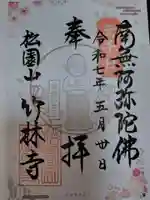 南無阿弥陀佛
令和七年五月廿日
奉拝
松園山竹林寺